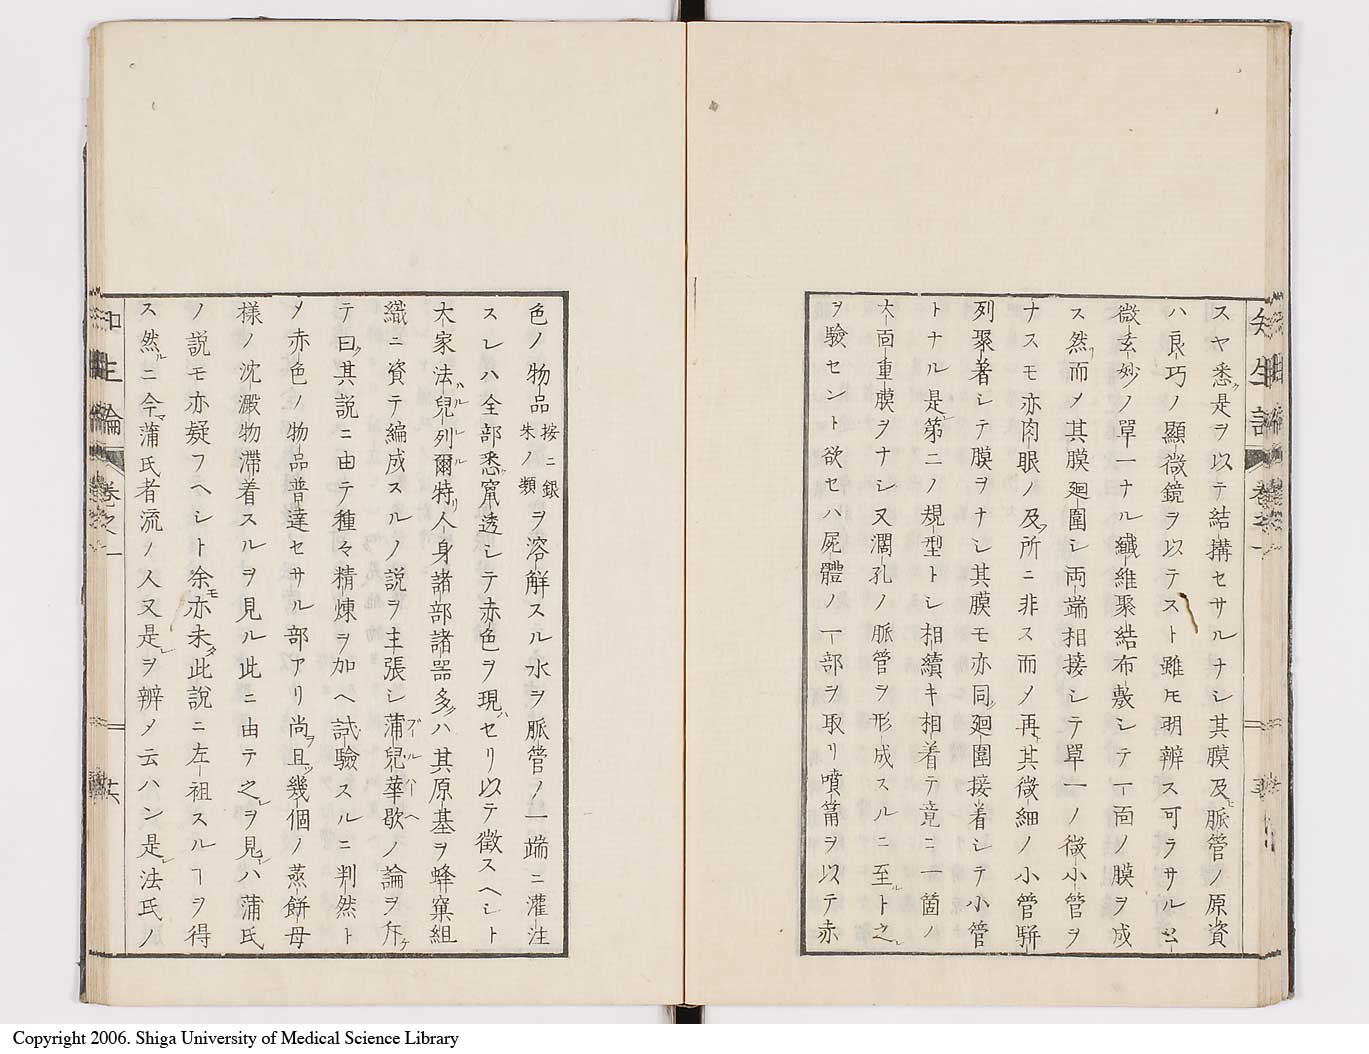 スヤ悉ク是ヲ以テ結搆セサルレナシ其膜及ヒ脈管ノ原資
ハ良巧ノ顯微鏡ヲ以テスト雖モ明辨ス可ラサル
微玄妙ノ單一ナル纎維聚結布敷シテ一面ノ膜ヲ成
ス然リ而メ其膜廻圍シ両端相接シテ單一ノ微小管ヲ
ナスモ亦肉眼ノ及フ所ニ非ス而ノ再ヒ其微細ノ小管駢
列聚着シテ膜ヲナシ其膜モ亦同ク廻圍接着シテ小管
トナル是レ第二ノ規型トシ相續キ相着テ竟ニ一箇ノ
大面重膜ヲナシ又濶孔ノ脈管ヲ形成スルニ至ルト之レ
ヲ驗セント欲セハ屍體ノ一部ヲ取リ噴筩ヲ以テ赤
知生論 巻之一
色ノ物品
按ニ銀
朱ノ類
ヲ溶解スル水ヲ脈管ノ一端ニ灌注
スレハ全部悉ク竄透シテ赤色ヲ現ハセリ以テ徴スヘシト
大家法兒列爾特ハルレルリ人身諸部諸噐多クハ其原基ヲ蜂窠組
織ニ資テ編成スルノ説ヲ主張シ蒲兒華歇ブイルハーヘノ論ヲ斥ケ
テ曰ク其説ニ由テ種々精煉ヲ加ヘ試驗スルニ判然ト
メ赤色ノ物品普達セサル部アリ尚ヲ且ツ幾個ノ蒸餅母
様ノ沈澱物滞着スルヲ見ル此ニ由テ之レヲ見レハ蒲氏
ノ説モ亦疑フヘシト余モ亦未タ此説ニ左祖スルヿヲ得
ス然ルニ今マ蒲氏者流ノ人又是レヲ辨メ云ハン是レ法氏ノ
知生論 巻之一 六
Copyright 2006. Shiga University of Medical Science Library